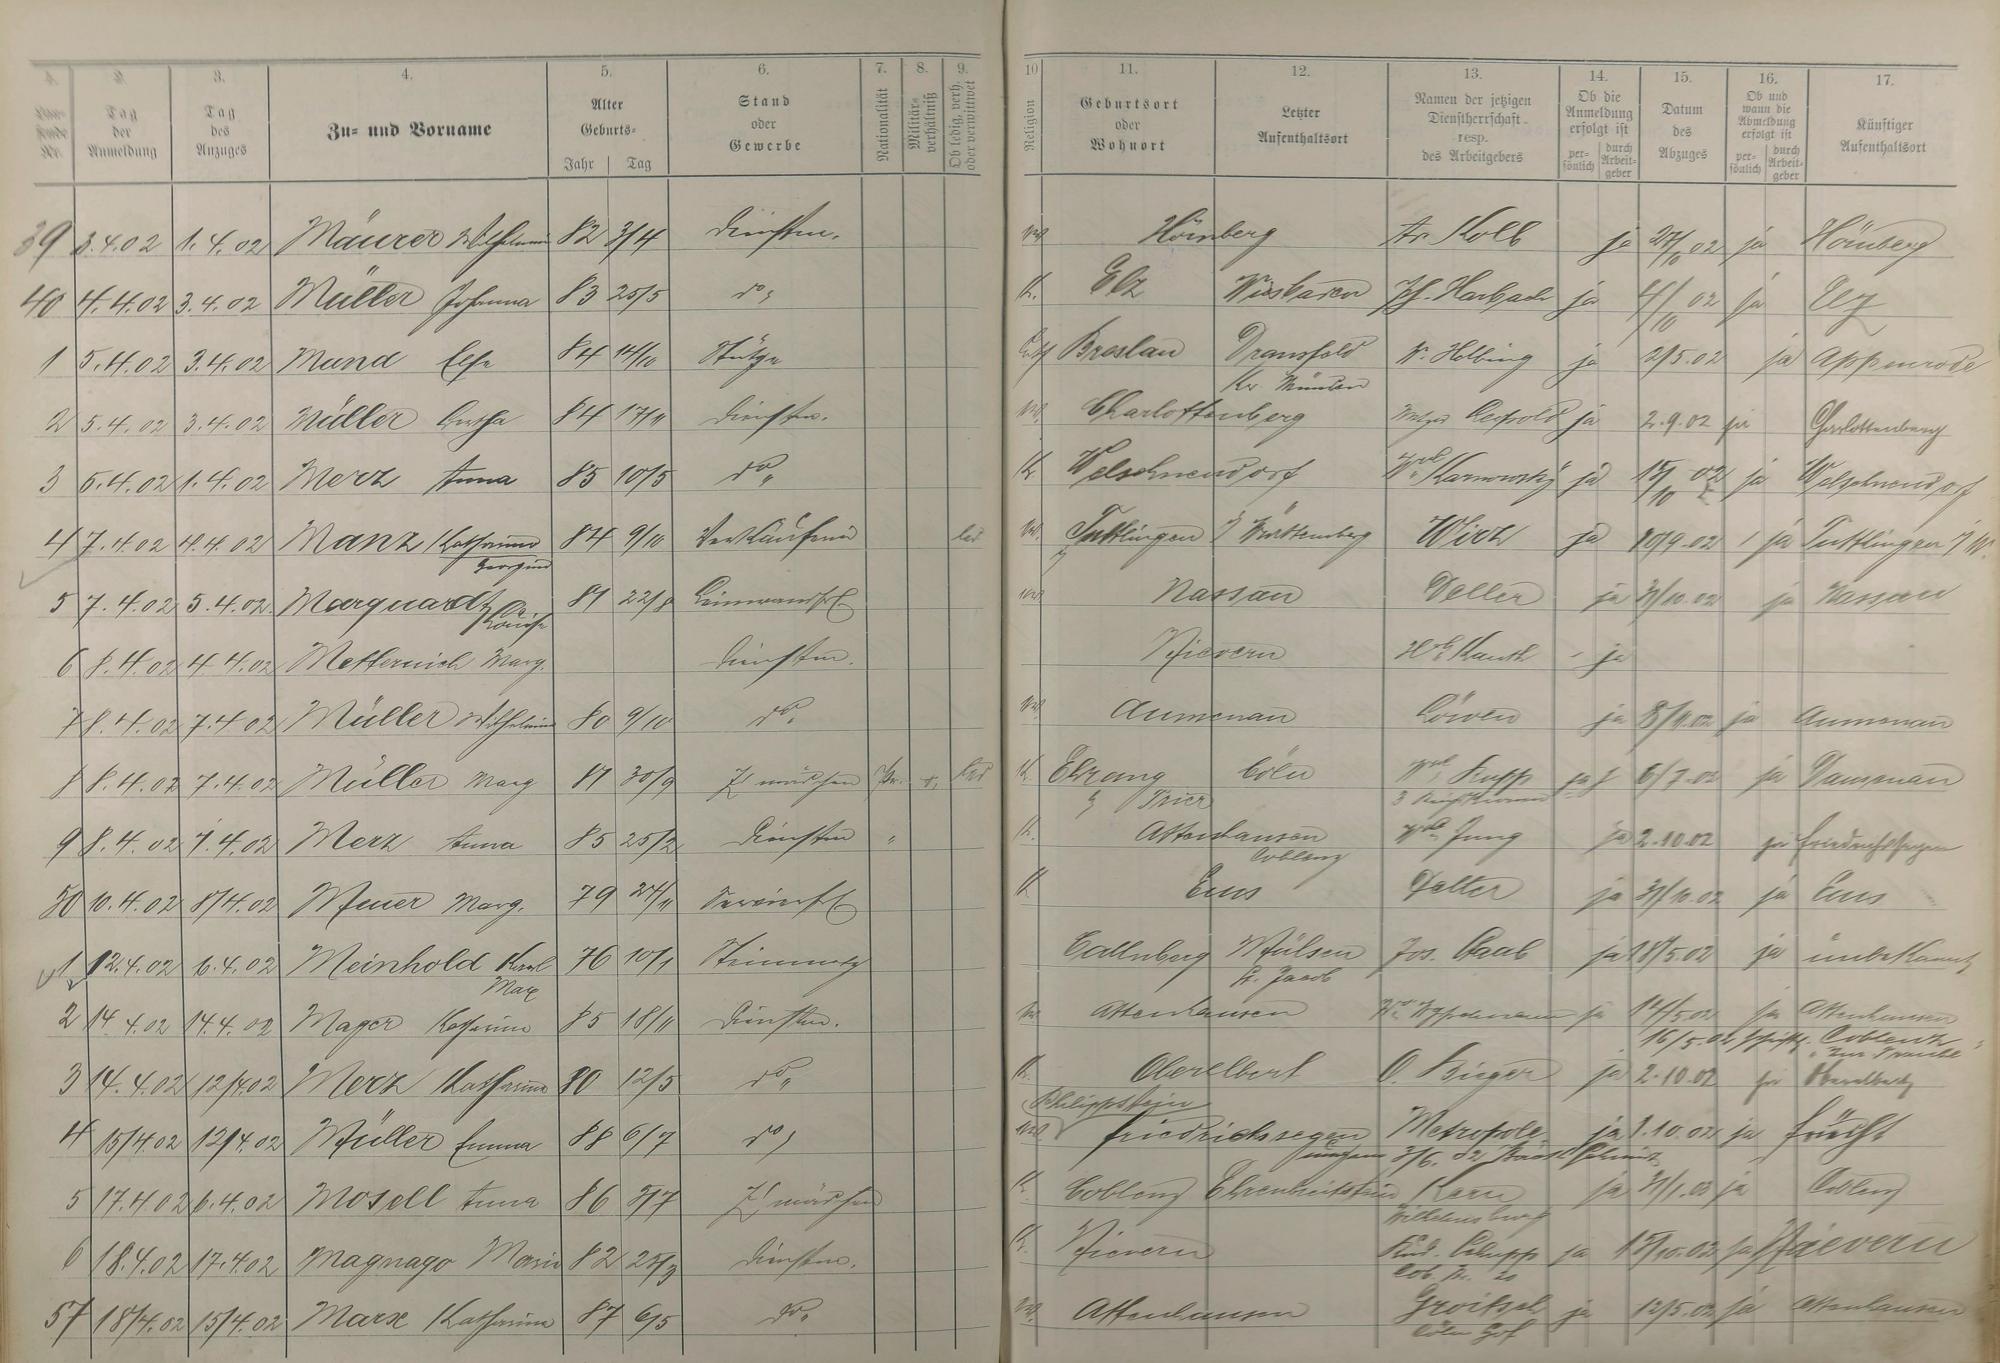 1. 2. 3. 4. 5. 6. 7. 8. 9. 10 11. 12. 13. 14. 15. 16. 17.
Tag der Anmeldung
Tag des Anzuges
Zu- und Vorname
Alter Geburts-
Jahr Tag
Stand oder Gewerbe
Nationalität
Militär-verhältniß
Ob ledig, verh. oder verwittwet
Religion
Geburtsort oder Wohnort
Letzter Aufenthaltsort
Namen der jetzigen Dienstherrschaft resp. des Arbeitgebers
Ob die Anmeldung erfolgt ist
per-sönlich durch Arbeit-geber
Datum des Abzuges
Ob und wann die Abmeldung erfolgt ist
per-sönlich durch Arbeit-geber
Künftiger Aufenthaltsort
39 3.4.02 1.4.02 Mäurer Wilhelmine 82 3/4 Dienstm. Hömberg Kolb ja 27/10 02 ja Hömberg
40 4.4.02 3.4.02 Müller Johanna 83 25/5 do K. Elz Wiesbaden Harbach ja 4/10 02 ja Elz
1 5.4.02 3.4.02 Mund Else 84 14/10 Stütze Breslau Dransfeld W. Helbing ja 2/5.02 ja Appenrode
Kr. Münden
2 5.4.02 3.4.02 Müller Bertha 84 17/11 Dienstm. Charlottenberg Leopold ja 2.9.02 ja Charlottenberg
3 5.4.02 1.4.02 Merz Anna 85 10/5 do K Welschneudorf Wwe Karnowsky ja 15/10 02 ja Welschneudorf
4 7.4.02 4.4.02 Manz Katharina 84 9/10 Verkäuferin led Tuttlingen Württemberg Wirth ja 10/9.02 ja Tuttlingen
5 7.4.02 5.4.02 Marquardt 81 22/8 Nassau Deller ja 31/10.02 ja Nassau
Louise
6 8.4.02 4.4.02 Metternich Marg. Dienstm. Nievern Kauth ja
7 8.4.02 7.4.02 Müller Wilhelmine 80 9/10 do. Aumenau Löwen ja 8/11.02 ja Aumenau
8 8.4.02 7.4.02 Müller Marg 81 30/9 Z mädchen Pr. led K. Ehrang Cöln Rupp ja 6/7.02 ja Dausenau
Trier
9 8.4.02 7.4.02 Merz Anna 85 25/2 Dienstm " K. Attenhausen Jung ja 2.10.02 ja Friedrichssegen
Coblenz
50 10.4.02 8/4.02 Meuer Marg. 79 27/11 K Ems Deller ja 31/10.02 ja Ems
1 12.4.02 6.4.02 Meinhold Karl 76 10/1 Steinmetz Callnberg Mülsen Jos. Staab ja 18/5.02 ja unbekannt
Max St. Jacob
2 14.4.02 14.4.02 Mager Katharina 85 18/11 Dienstm. Attenhausen ja 14/5.02 ja Attenhausen
16/5.02 Coblenz
3 14.4.02 12/4.02 Merz Katharina 80 12/5 do K. Oberelbert O. Bieger ja 2.10.02 ja Oberelbert
Philippstein
4 15/4.02 12/4.02 Müller Emma 88 6/7 do Friedrichssegen Metropole ja 1.10.02 ja Frücht
5 17.4.02 6.4.02 Mosell Anna 86 3/7 Z mädchen K. Coblenz Ehrenbreitstein Korn ja 31/1.03 ja Coblenz
Wilhelmsburg
6 18.4.02 17.4.02 Magnago Maria 82 25/3 Dienstm. K. Nievern ja 15/10.02 ja Nievern
57 18/4.02 15/4.02 Marx Katharina 87 6/5 do. Attenhausen Groitsch ja 12/5.02 ja Attenhausen
Cölner Hof